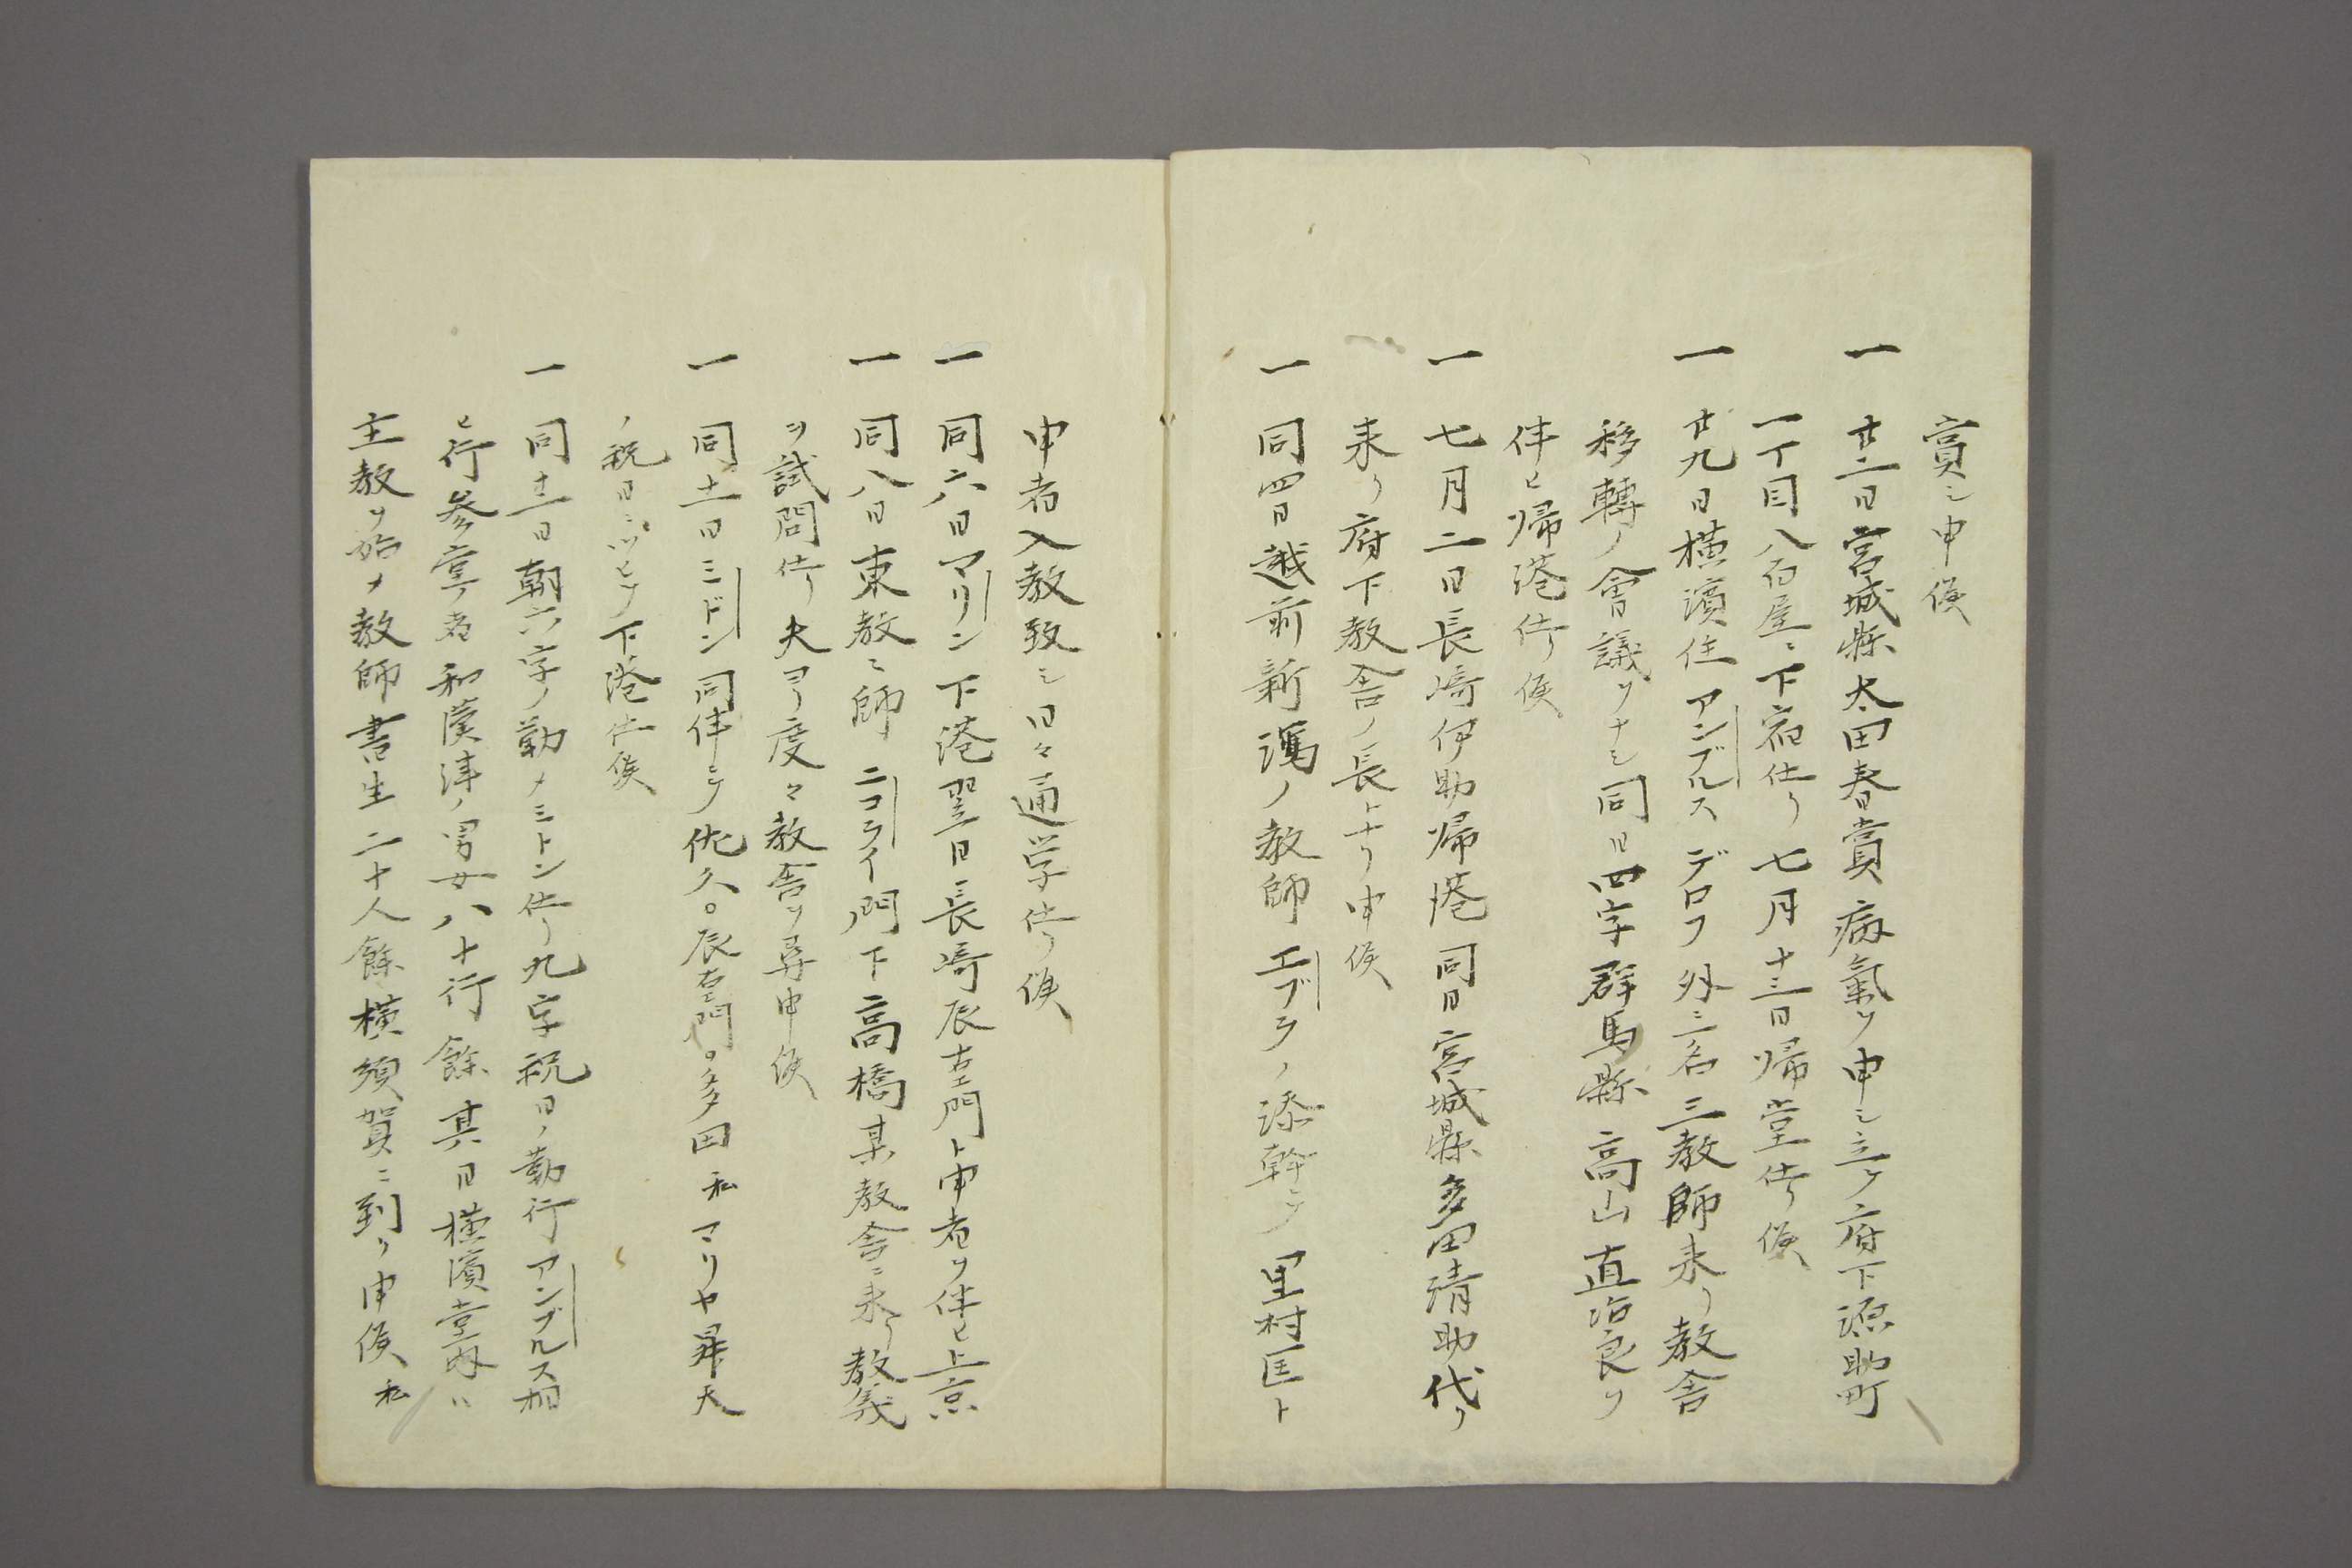 賞シ申候
一 廿二日宮城縣太田春賞病氣ヲ申シ立テ府下源助町
一丁目八百屋ニ下宿仕リ七月十三日帰堂仕リ候
一 廿九日横濱住アンブルスデロフ外ニ名三教師来リ教舎
移轉ノ會議ヲナシ同日四字群馬縣高山直治良ヲ
伴ヒ帰港仕リ候
一 七月二日長崎伊助帰港同日宮城縣多田清助代リ
来リ府下教舎ノ長トナリ申候
一 同四日越前新潟ノ教師エブラノ添幹ニテ里村匡ト
申者入教致シ日々通学仕リ候
一 同六日マリン下港翌日長崎辰右エ門ト申者ヲ伴ヒ上京
一 同八日東教ニ師ニコライ門下高橋某教舎ニ来リ教義
ヲ試問仕リ夫ヨリ度々教舎ヲ尋申候
一 同十一日ミドン同伴ニテ佐久。辰右エ門。多田私マリヤ昇天
ノ祝日ニツヒテ下港仕候
一 同十二日朝六字ノ勤メミトン仕リ九字祝日ノ勤行アンブルス相
ヒ行参堂ノ者和漢洋ノ男女八十行餘其日横濱堂内ハ
主教ヲ始メ教師書生二十人餘横須賀ニ到リ申候私